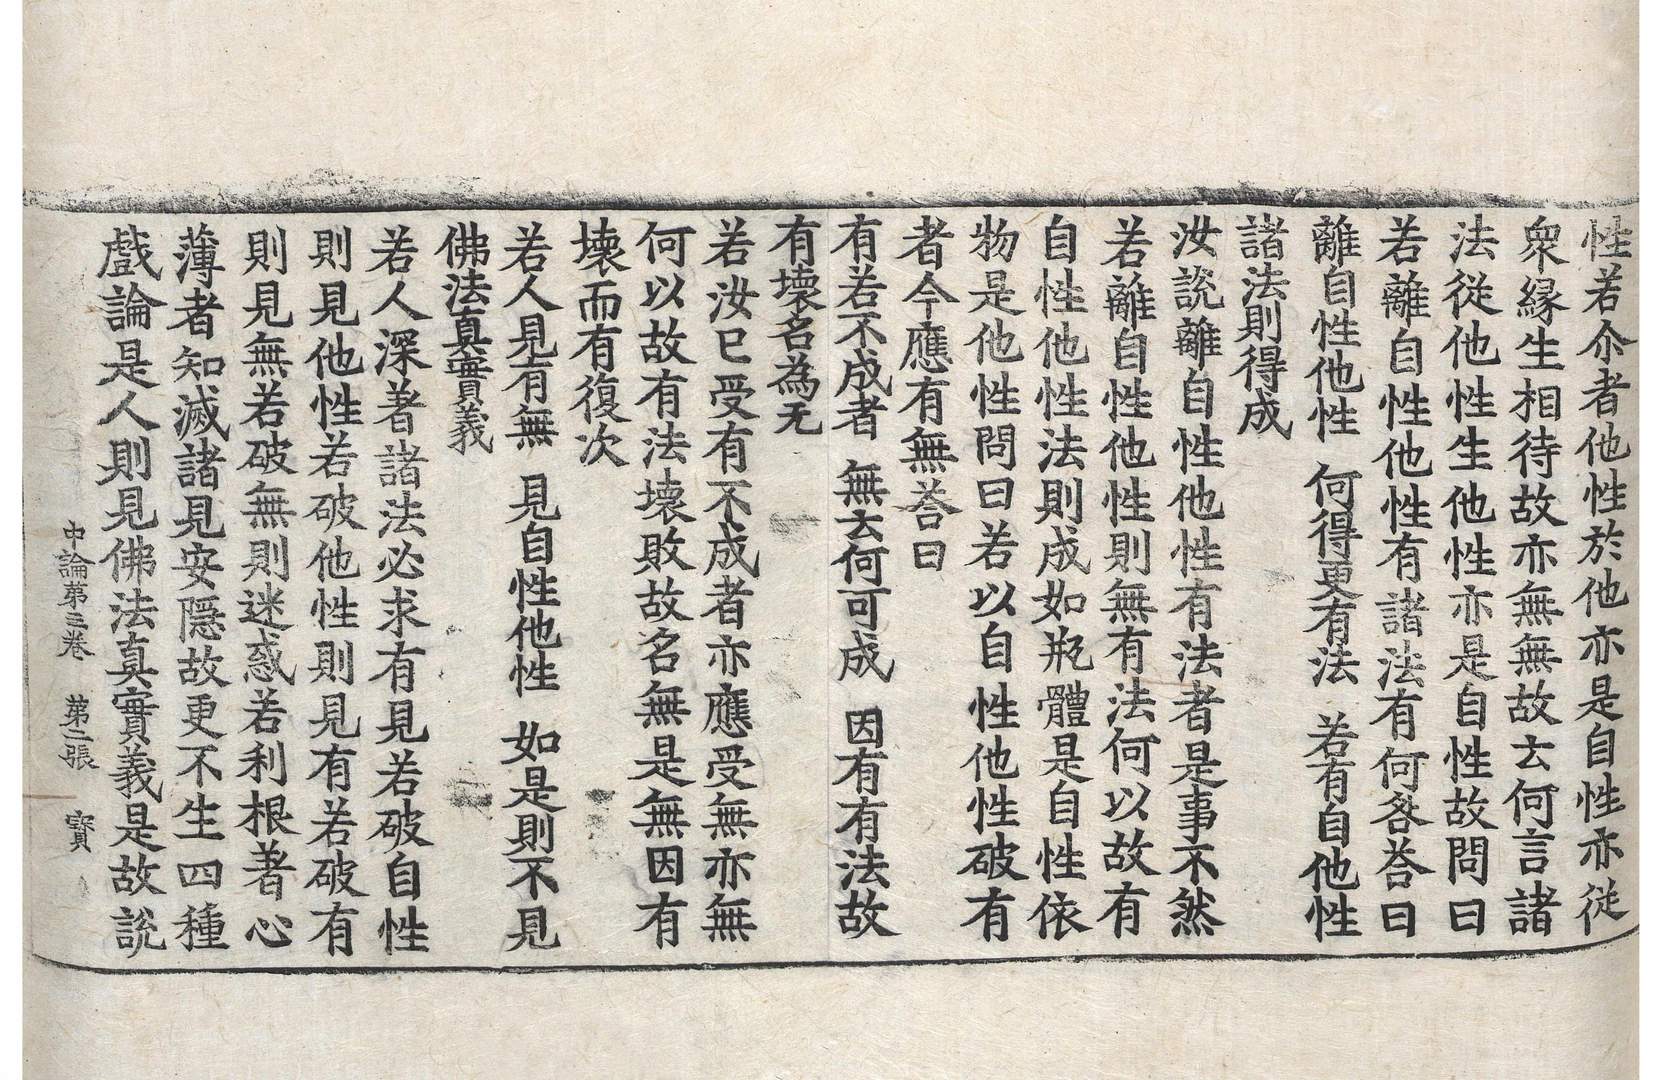 性若尒者他性於他亦是自性亦從
衆緣生相待故亦無無故云何言諸
法從他性生他性亦是自性故問曰
若離自性他性有諸法有何咎荅曰
離自性他性　何得更有法　若有自他性
諸法則得成
汝說離自性他性有法者是事不然
若離自性他性則無有法何以故有
自性他性法則成如瓶體是自性依
物是他性問曰若以自性他性破有
者今應有無荅曰
有若不成者　無云何可成　因有有法故
有壞名為无
若汝已受有不成者亦應受無亦無
何以故有法壞敗故名無是無因有
壞而有復次
若人見有無　見自性他性　如是則不見
佛法真實義
若人深著諸法必求有見若破自性
則見他性若破他性則見有若破有
則見無若破無則迷惑若利根著心
薄者知滅諸見安隠故更不生四種
戲論是人則見佛法真實義是故說
中論第三卷　第二張　寳